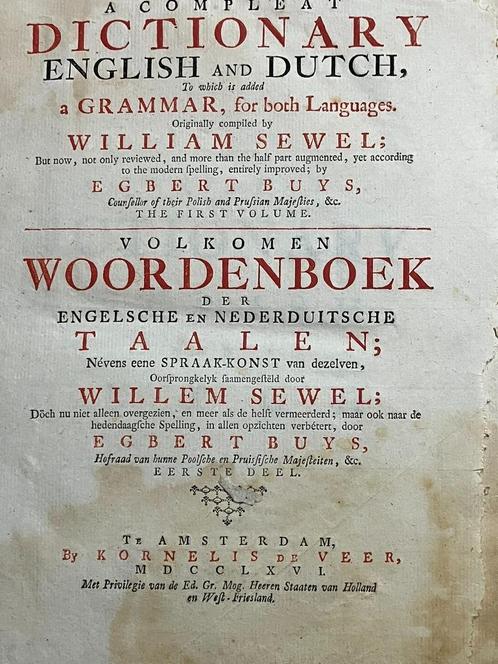 A COMPLEAT
DICTIONARY
ENGLISH AND DUTCH,
To which is added
a GRAMMAR, for both Languages.
Originally compiled by
WILLIAM SEWEL;
But now, not only reviewed, and more than the half part augmented, yet according
to the modern ſpelling, entirely improved; by
EGBERT BUYS,
Counſellor of their Polish and Pruſsian Majeſties, &c.
THE FIRST VOLUME.
VOLKOMEN
WOORDENBOEK
DER
ENGELSCHE EN NEDERDUITSCHE
TAALEN;
Névens eene SPRAAK-KONST van dezelven,
Oorſprongkelyk ſaamengeſtèld door
WILLEM SEWEL;
Dòch nu niet alleen overgezien, en meer als de helft vermeerderd; maar ook naar de
hedendaagſche Spelling, in allen opzichten verbéterd, door
EGBERT BUYS,
Hofraad van hunne Poolſche en Pruiſsiſche Majeſteiten, &c.
EERSTE DEEL.
TE AMSTERDAM,
By KORNELIS DE VEER,
MDCCLXVI.
Met Privilegie van de Ed. Gr. Mog. Heeren Staaten van Holland
en Weſt-Frieſland.